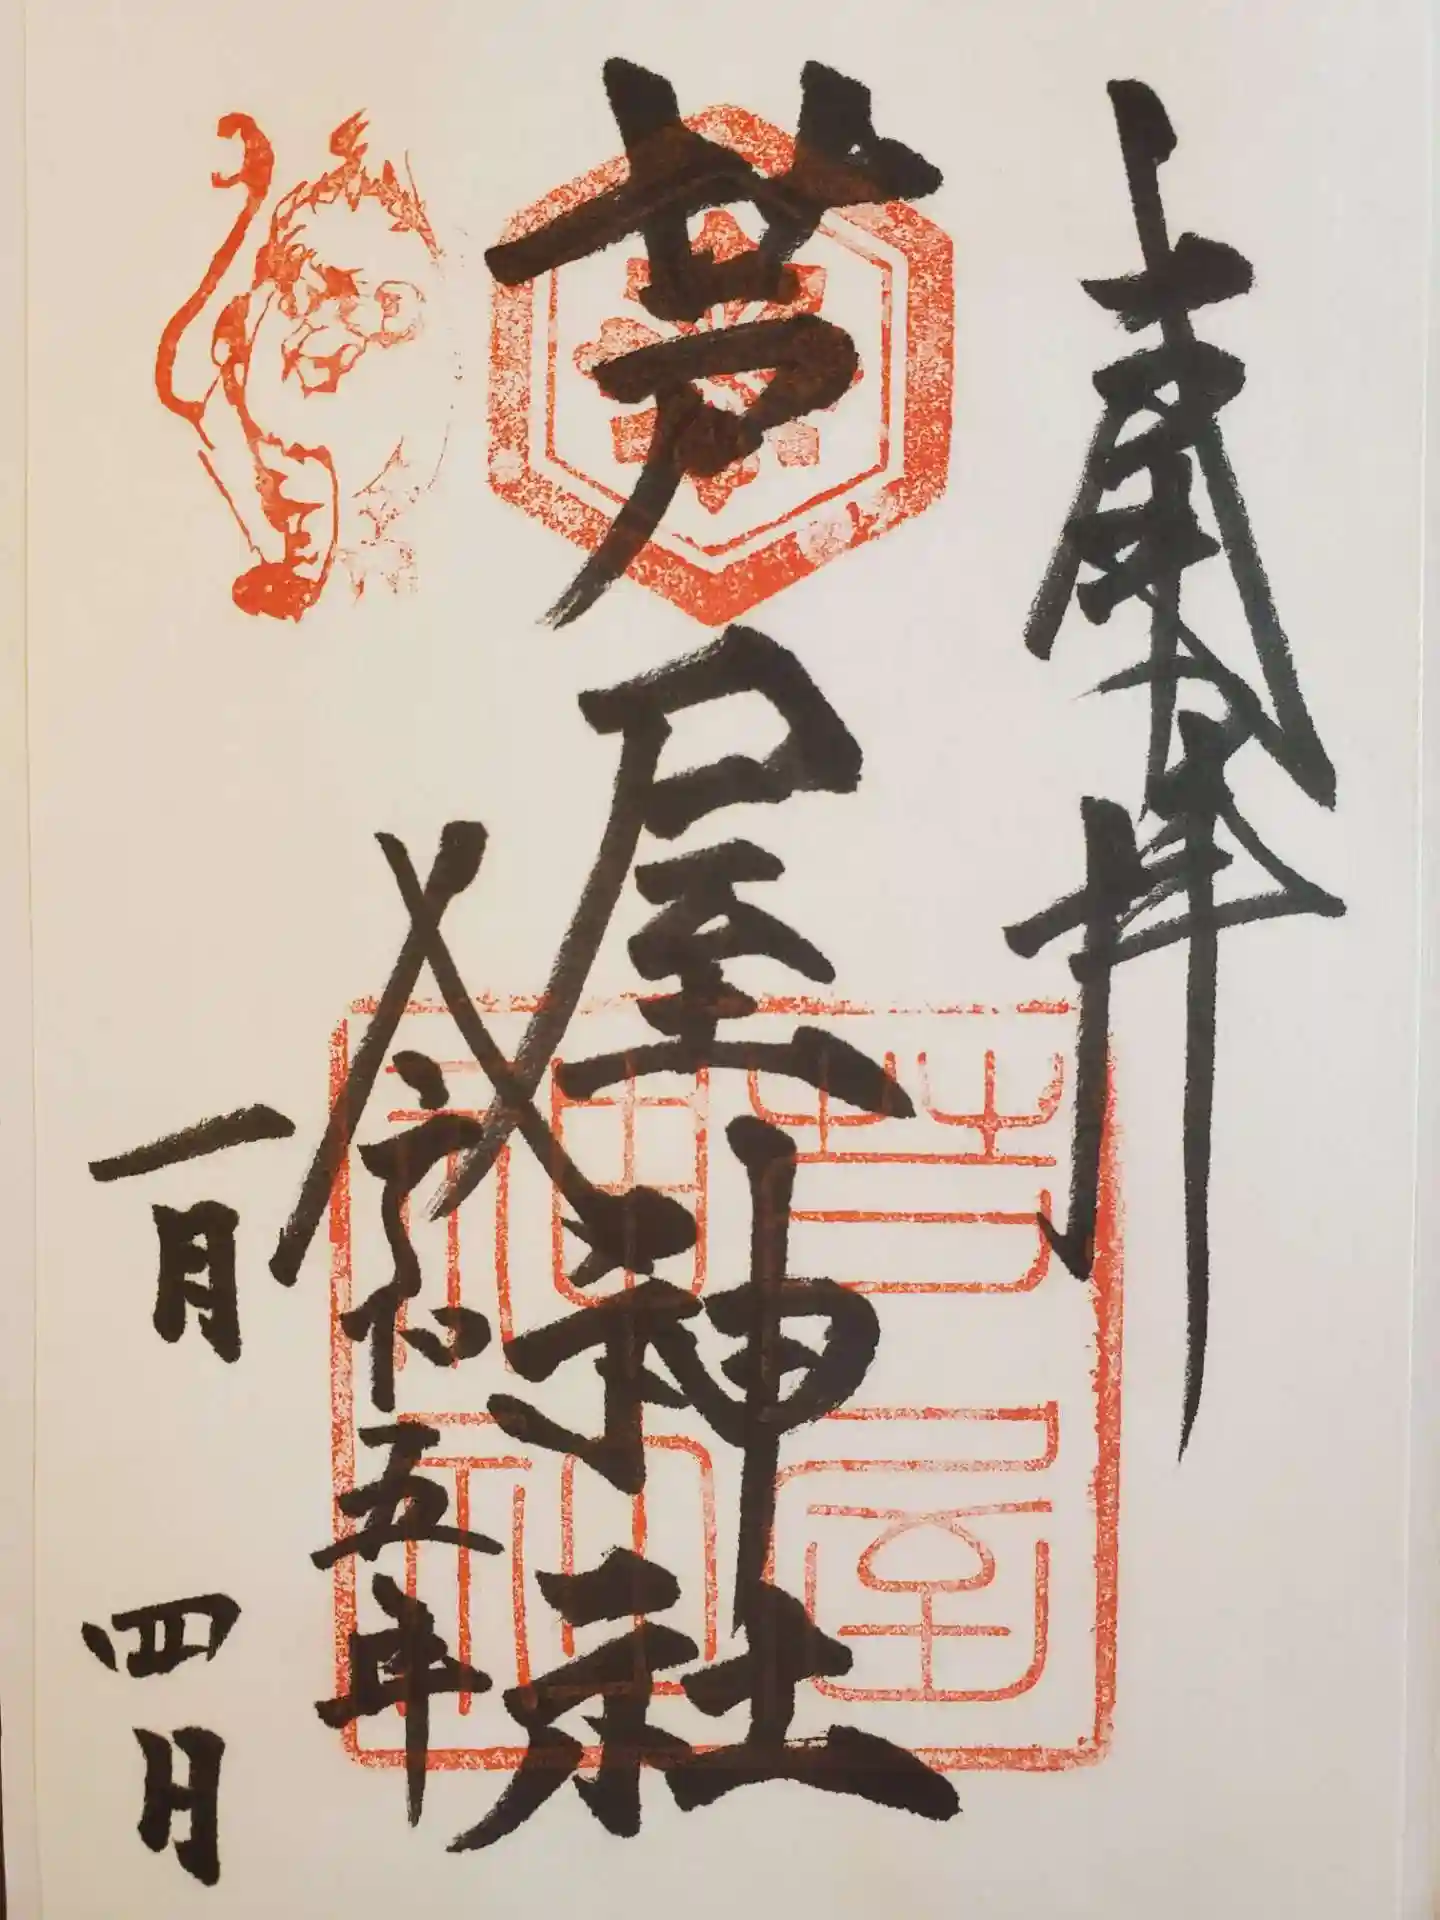 奉拝
芦屋神社
令和五年
一月四日
芦屋
神社